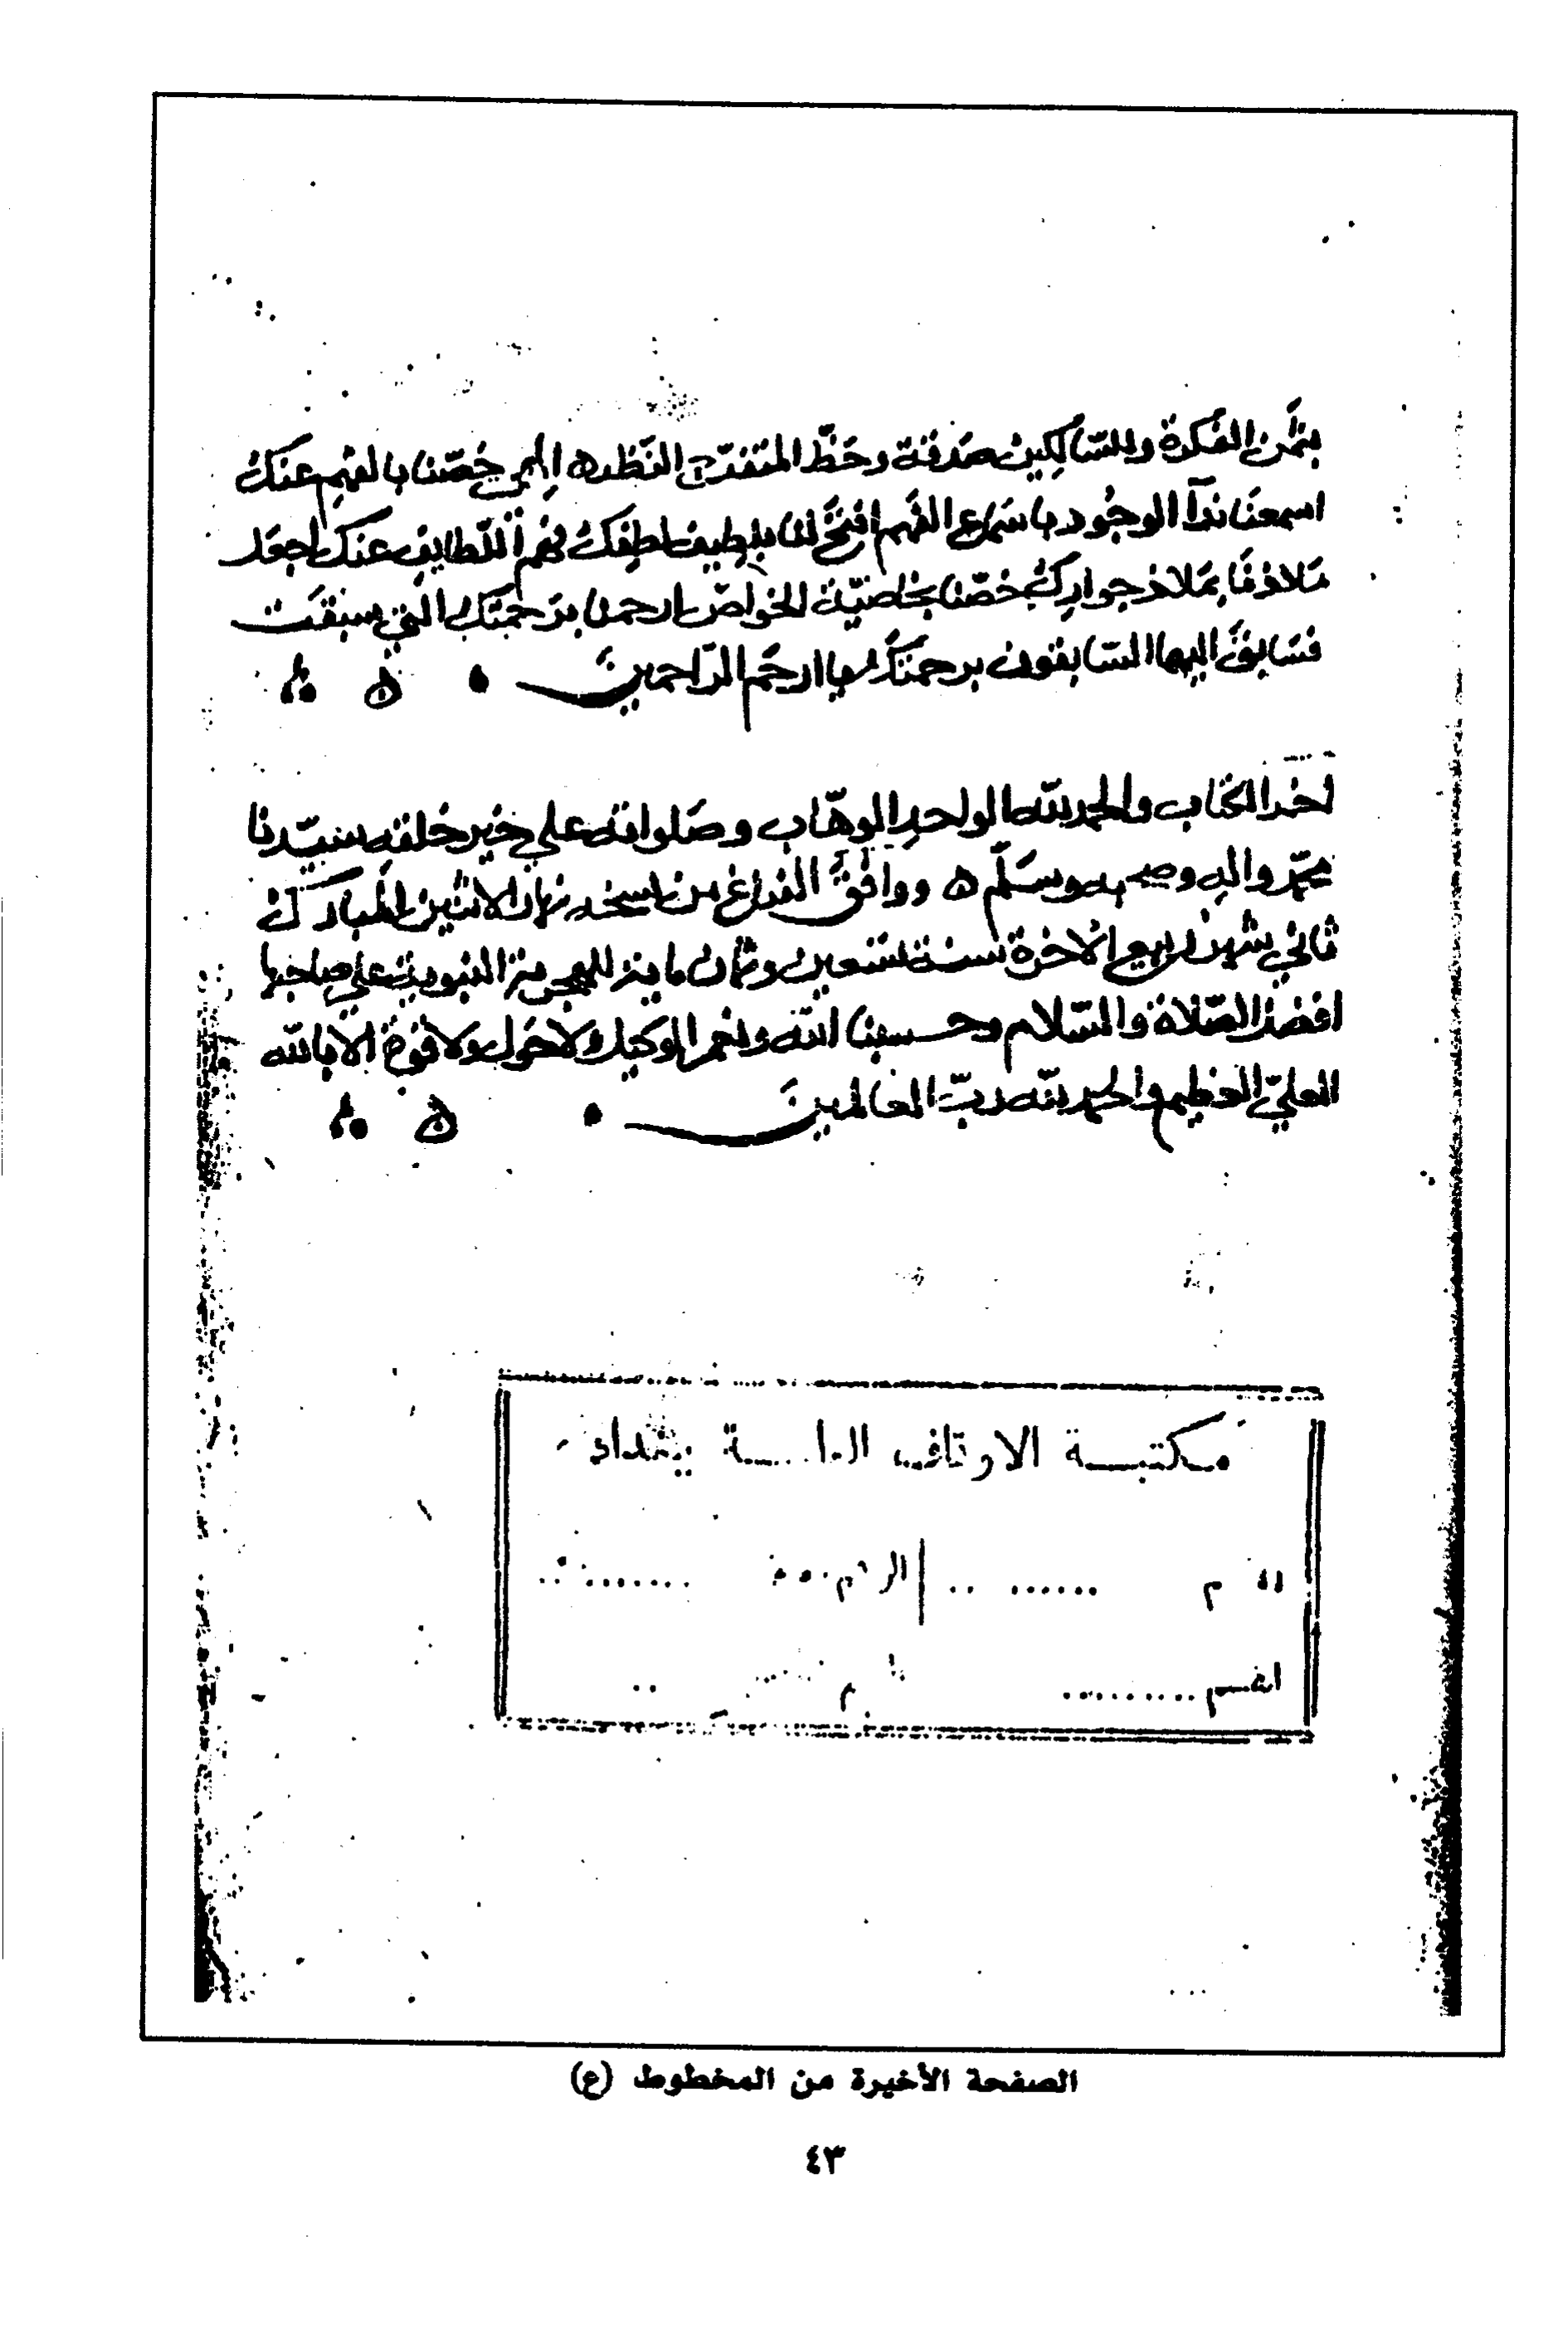 بثمن الفكرة وللسالكين صدقة وحظ المتفرج النظره الهي خصنا بالفهم عنك
اسمعنا ندآ الوجود باسماع الفهم افتح لنا بلطيف لطفك فهم اللطايف عنك اجعل
ملاذنا بملاذ جوارك خصنا بخاصية الخواص ارحمنا برحمتك التي سبقت
فسابق اليها السابقون برحمتك يا ارحم الراحمين
اخر الكتاب والحمد لله الواحد الوهاب وصلواته على خير خلقه سيدنا
محمد واله وصحبه وسلم ه ووافق الفراغ من نسخه نهار الاثنين المبارك
ثاني شهر ربيع الاخرة سنة تسعين وثمان ماية للهجرة النبوية على صاحبها
افضل الصلاة والسلام وحسبنا الله ونعم الوكيل ولا حول ولا قوة الا بالله
العلي العظيم والحمد لله رب العالمين
مكتبة الاوقاف العامة ببغداد
الرقم
القسم
الصفحة الأخيرة من المخطوط (ع)
٤٣